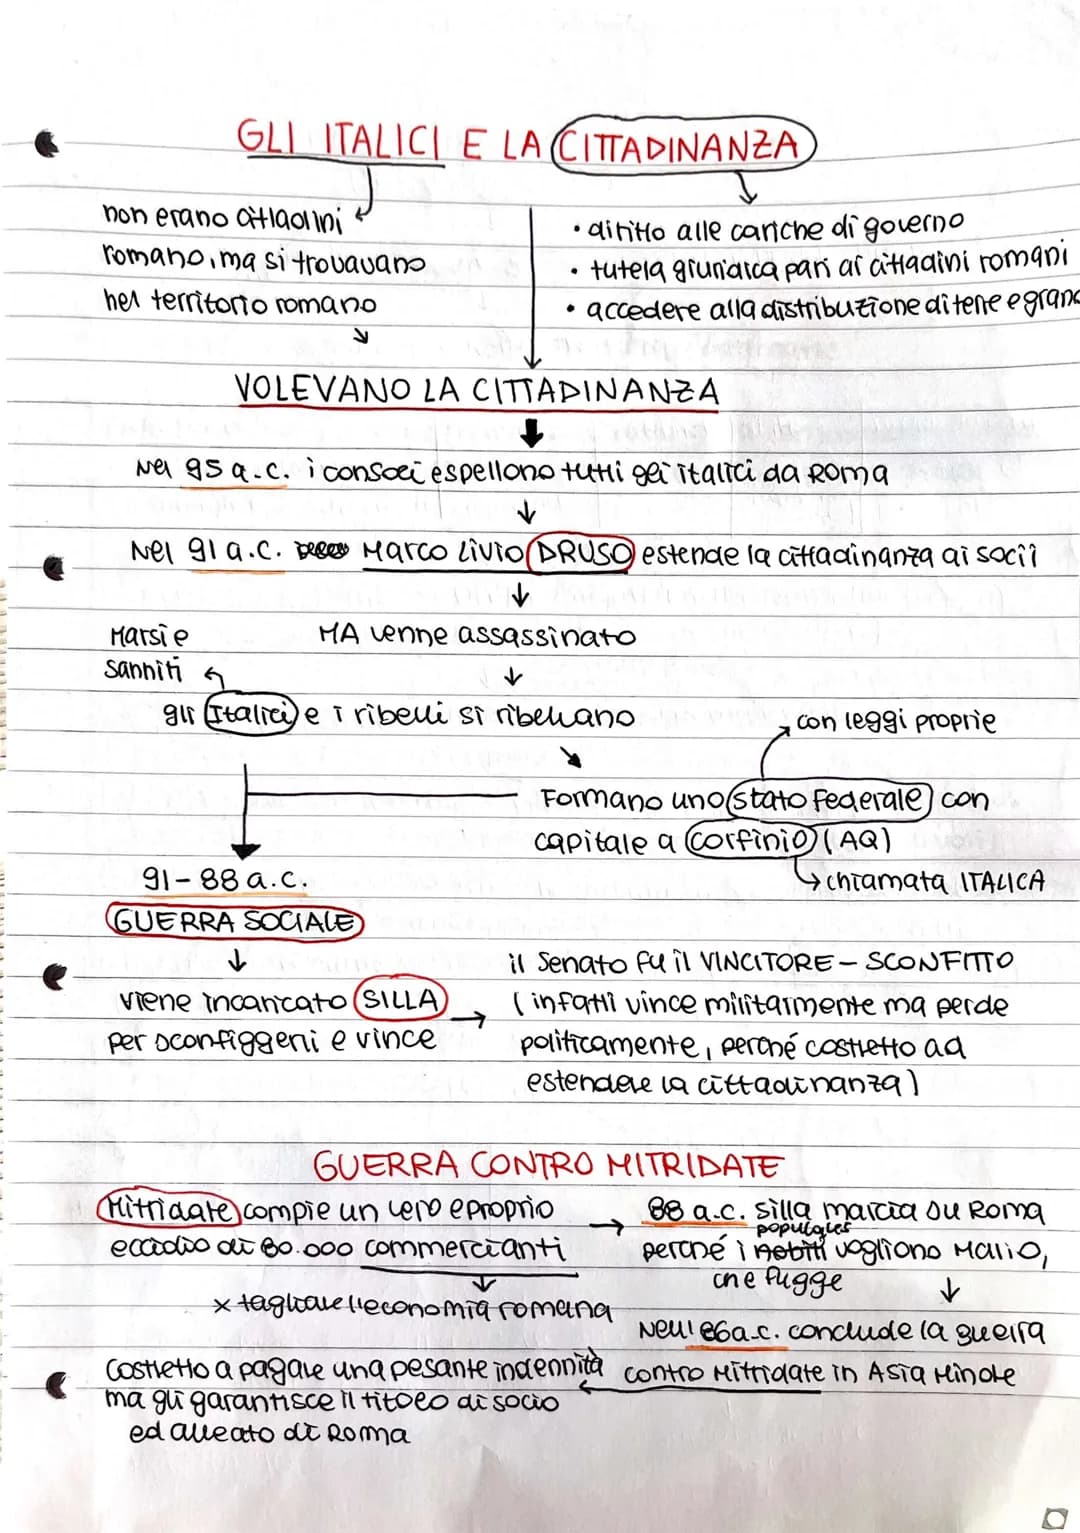 GLI ITALICI E LA CITTADINANZA
non erano cittadini
romano, ma si trovavano
nel territorio romano
• diritto alle cariche di governo
• tutela giuridica pari ai cittadini romani
• accedere alla distribuzione di terre e grano
VOLEVANO LA CITTADINANZA
Nel 95 a.C. i consoli espellono tutti gli italici da Roma
Nel 91 a.C. Marco Livio DRUSO estende la cittadinanza ai socii
MA venne assassinato
Marsi e
Sanniti
gli Italici e i ribelli si ribellano
con leggi proprie
Formano uno stato federale con
capitale a Corfinio (AQ)
chiamata ITALICA
91-88 a.C.
GUERRA SOCIALE
viene incaricato SILLA
per sconfiggerli e vince
il Senato fu il VINCITORE - SCONFITTO
(infatti vince militarmente ma perde
politicamente, perché costretto ad
estendere la cittadinanza)
GUERRA CONTRO MITRIDATE
Mitridate compie un vero e proprio
eccidio di 80.000 commercianti
x tagliare l'economia romana
88 a.C. Silla marcia su Roma
populares
perché i nobili vogliono Mario,
che fugge
Nell'86 a.C. conclude la guerra
contro Mitridate in Asia Minore
costretto a pagare una pesante indennità
ma gli garantisce il titolo di socio
ed alleato di Roma